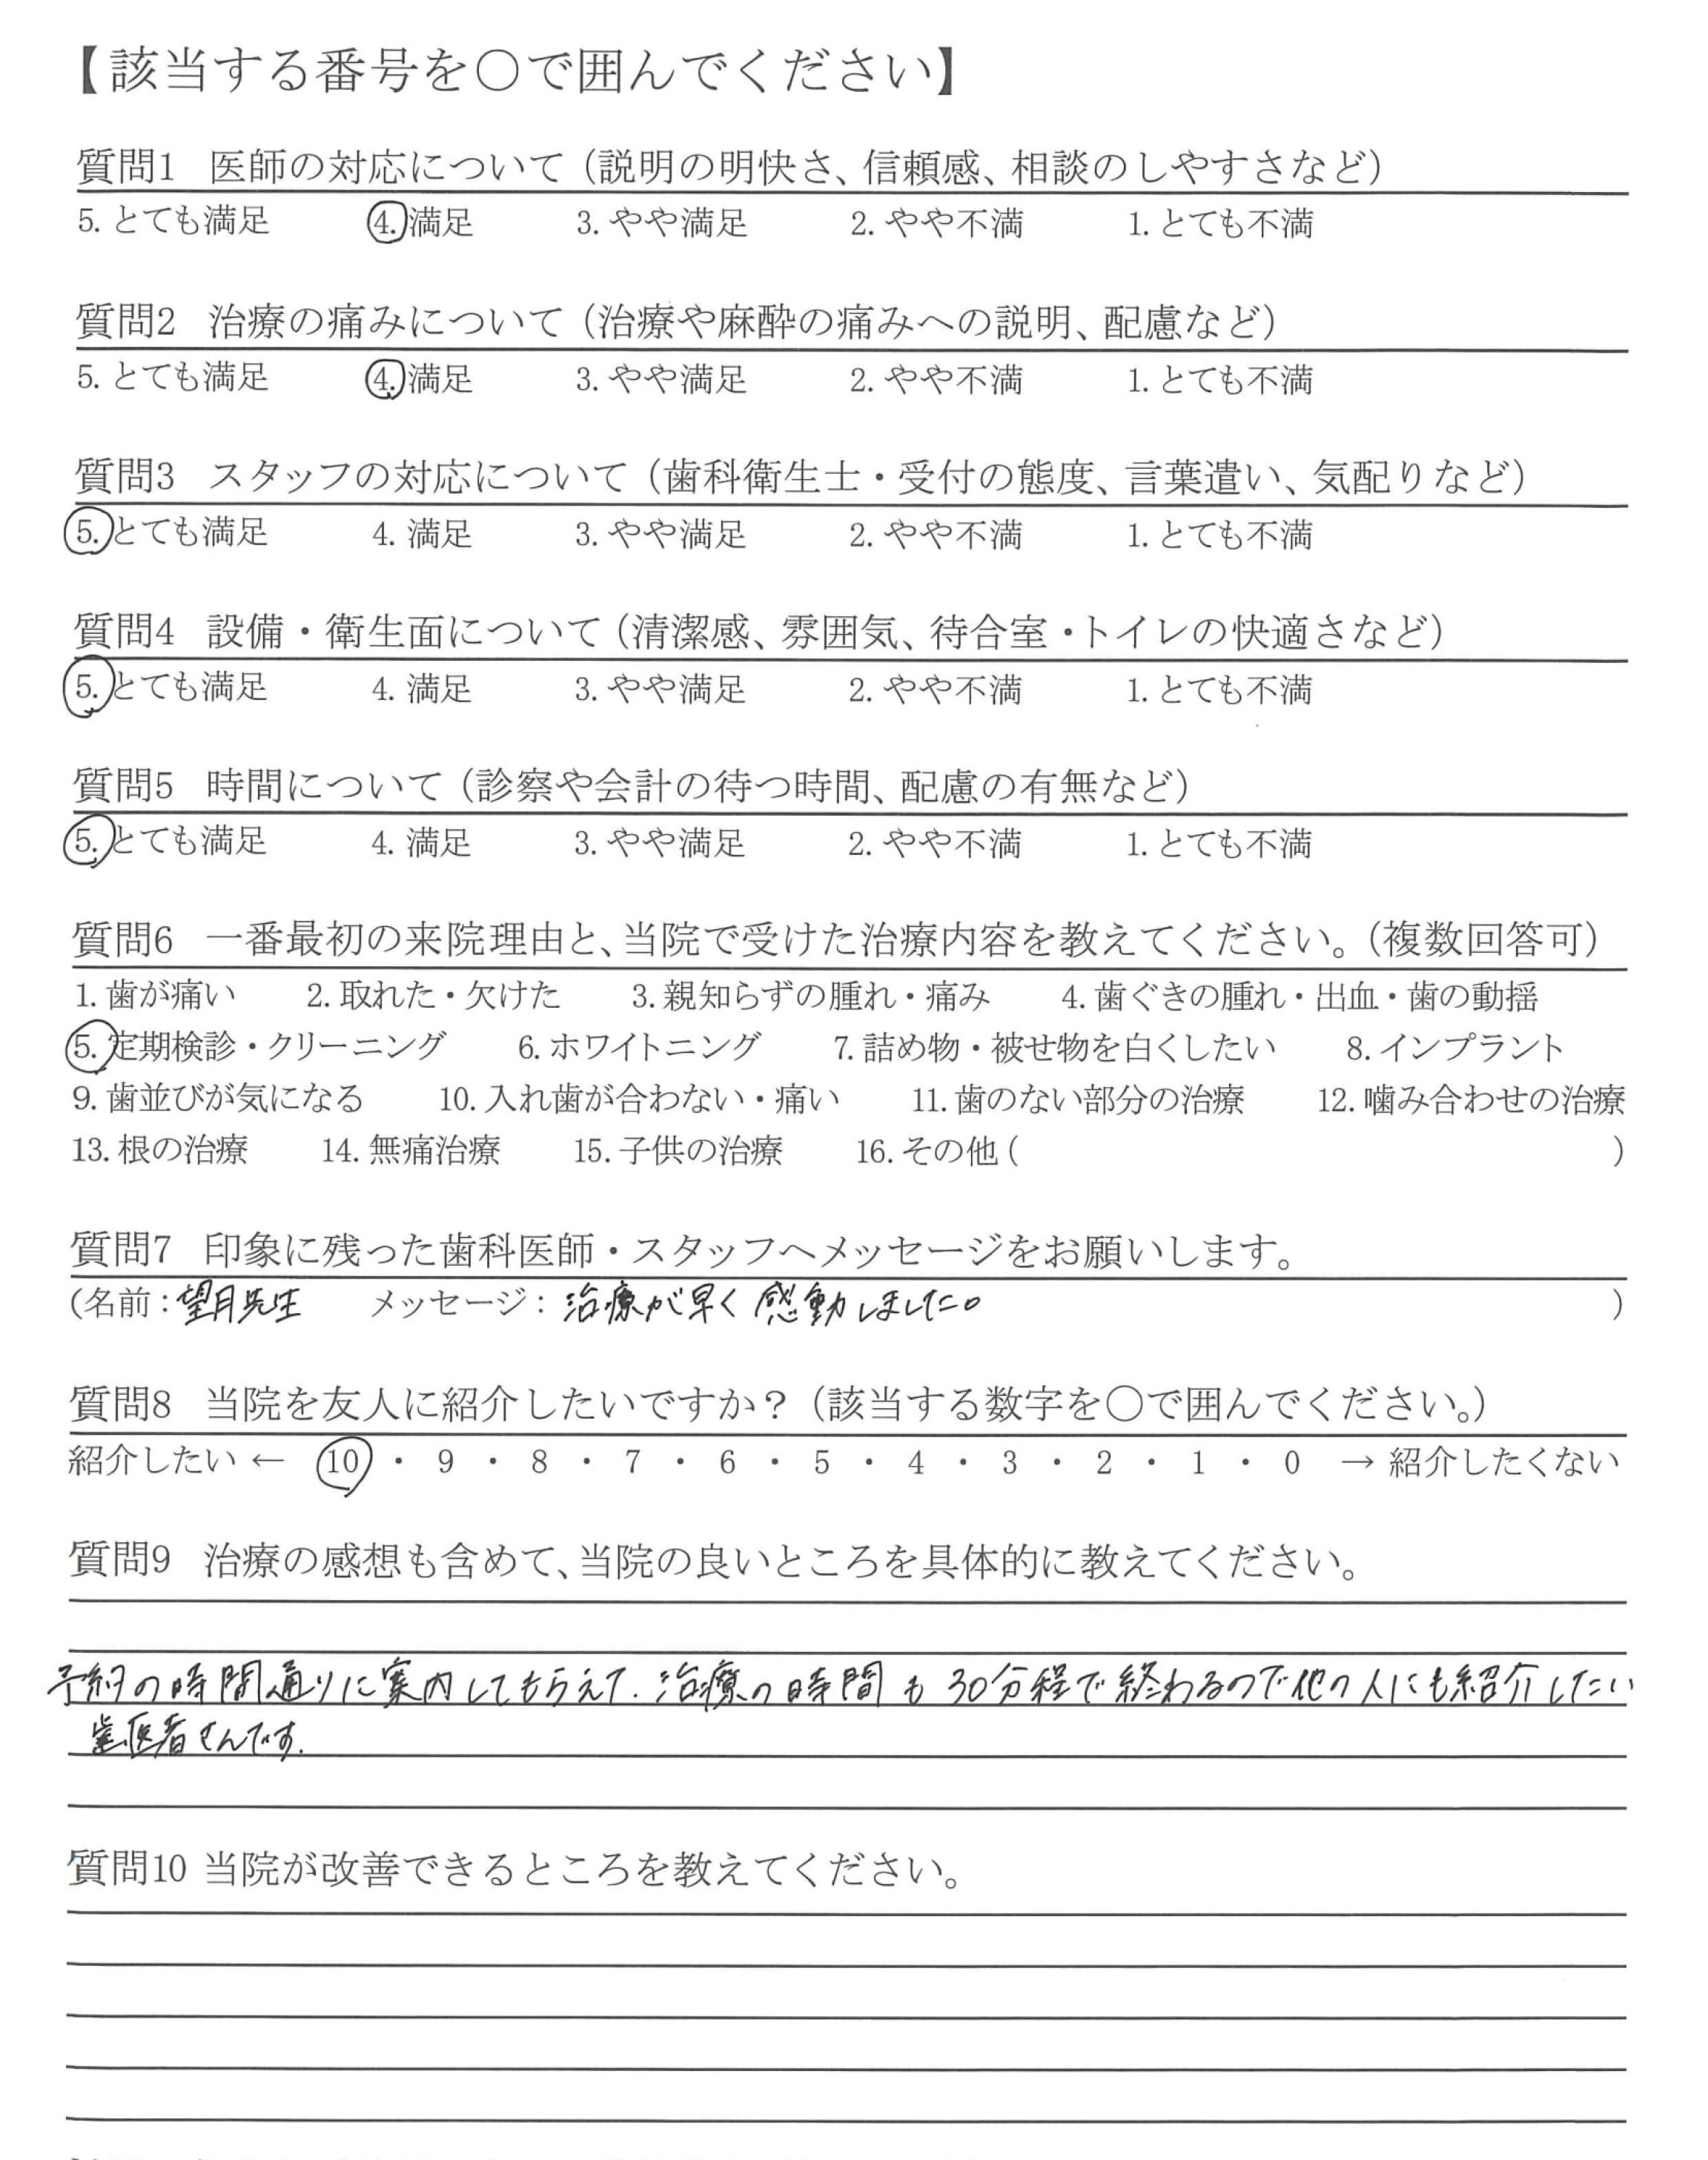 【該当する番号を○で囲んでください】
質問1 医師の対応について（説明の明快さ、信頼感、相談のしやすさなど）
5. とても満足 4. 満足 3. やや満足 2. やや不満 1. とても不満
質問2 治療の痛みについて（治療や麻酔の痛みへの説明、配慮など）
5. とても満足 4. 満足 3. やや満足 2. やや不満 1. とても不満
質問3 スタッフの対応について（歯科衛生士・受付の態度、言葉遣い、気配りなど）
5. とても満足 4. 満足 3. やや満足 2. やや不満 1. とても不満
質問4 設備・衛生面について（清潔感、雰囲気、待合室・トイレの快適さなど）
5. とても満足 4. 満足 3. やや満足 2. やや不満 1. とても不満
質問5 時間について（診察や会計の待つ時間、配慮の有無など）
5. とても満足 4. 満足 3. やや満足 2. やや不満 1. とても不満
質問6 一番最初の来院理由と、当院で受けた治療内容を教えてください。（複数回答可）
1. 歯が痛い 2. 取れた・欠けた 3. 親知らずの腫れ・痛み 4. 歯ぐきの腫れ・出血・歯の動揺
5. 定期検診・クリーニング 6. ホワイトニング 7. 詰め物・被せ物を白くしたい 8. インプラント
9. 歯並びが気になる 10. 入れ歯が合わない・痛い 11. 歯のない部分の治療 12. 噛み合わせの治療
13. 根の治療 14. 無痛治療 15. 子供の治療 16. その他（ ）
質問7 印象に残った歯科医師・スタッフへメッセージをお願いします。
（名前：望月先生 メッセージ：治療が早く感動しました。）
質問8 当院を友人に紹介したいですか？（該当する数字を○で囲んでください。）
紹介したい ← 10 ・ 9 ・ 8 ・ 7 ・ 6 ・ 5 ・ 4 ・ 3 ・ 2 ・ 1 ・ 0 → 紹介したくない
質問9 治療の感想も含めて、当院の良いところを具体的に教えてください。
予約の時間通りに案内してもらえて、治療の時間も30分程で終わるので他の人にも紹介したい
歯医者さんです.
質問10 当院が改善できるところを教えてください。